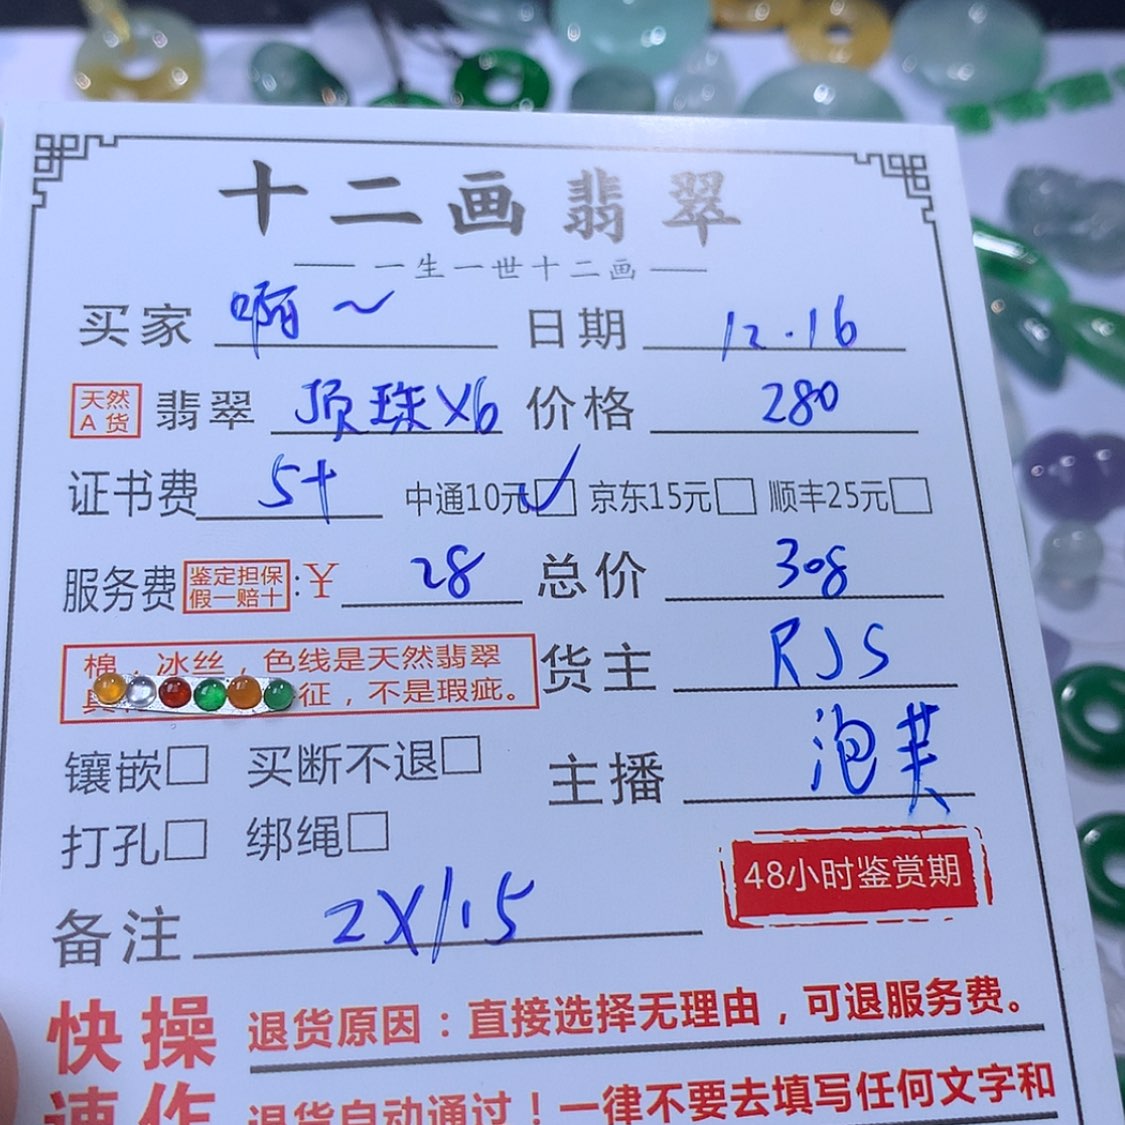 十二画翡翠
一生一世十二画
买家 啊~ 日期 12.16
天然A货 翡翠 顶珠X6 价格 280
证书费 5+ 中通10元☑ 京东15元□ 顺丰25元□
服务费 鉴定担保假一赔十:¥ 28 总价 308
棉，冰丝，色线是天然翡翠
征，不是瑕疵。
货主 RJS
镶嵌□ 买断不退□ 主播 泡芙
打孔□ 绑绳□
48小时鉴赏期
备注 2X1.5
快操 退货原因：直接选择无理由，可退服务费。
速作 退货自动通过！一律不要去填写任何文字和